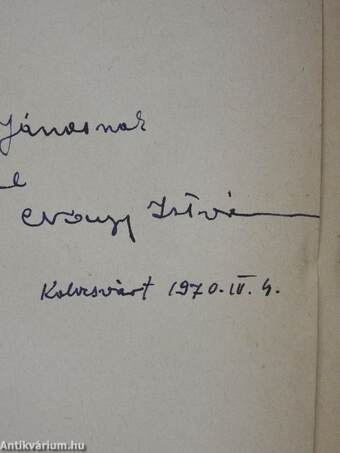 Jánosnak
l
Nagy István
Kolozsvárt 1970. IV. 4.
Antikvárium.hu